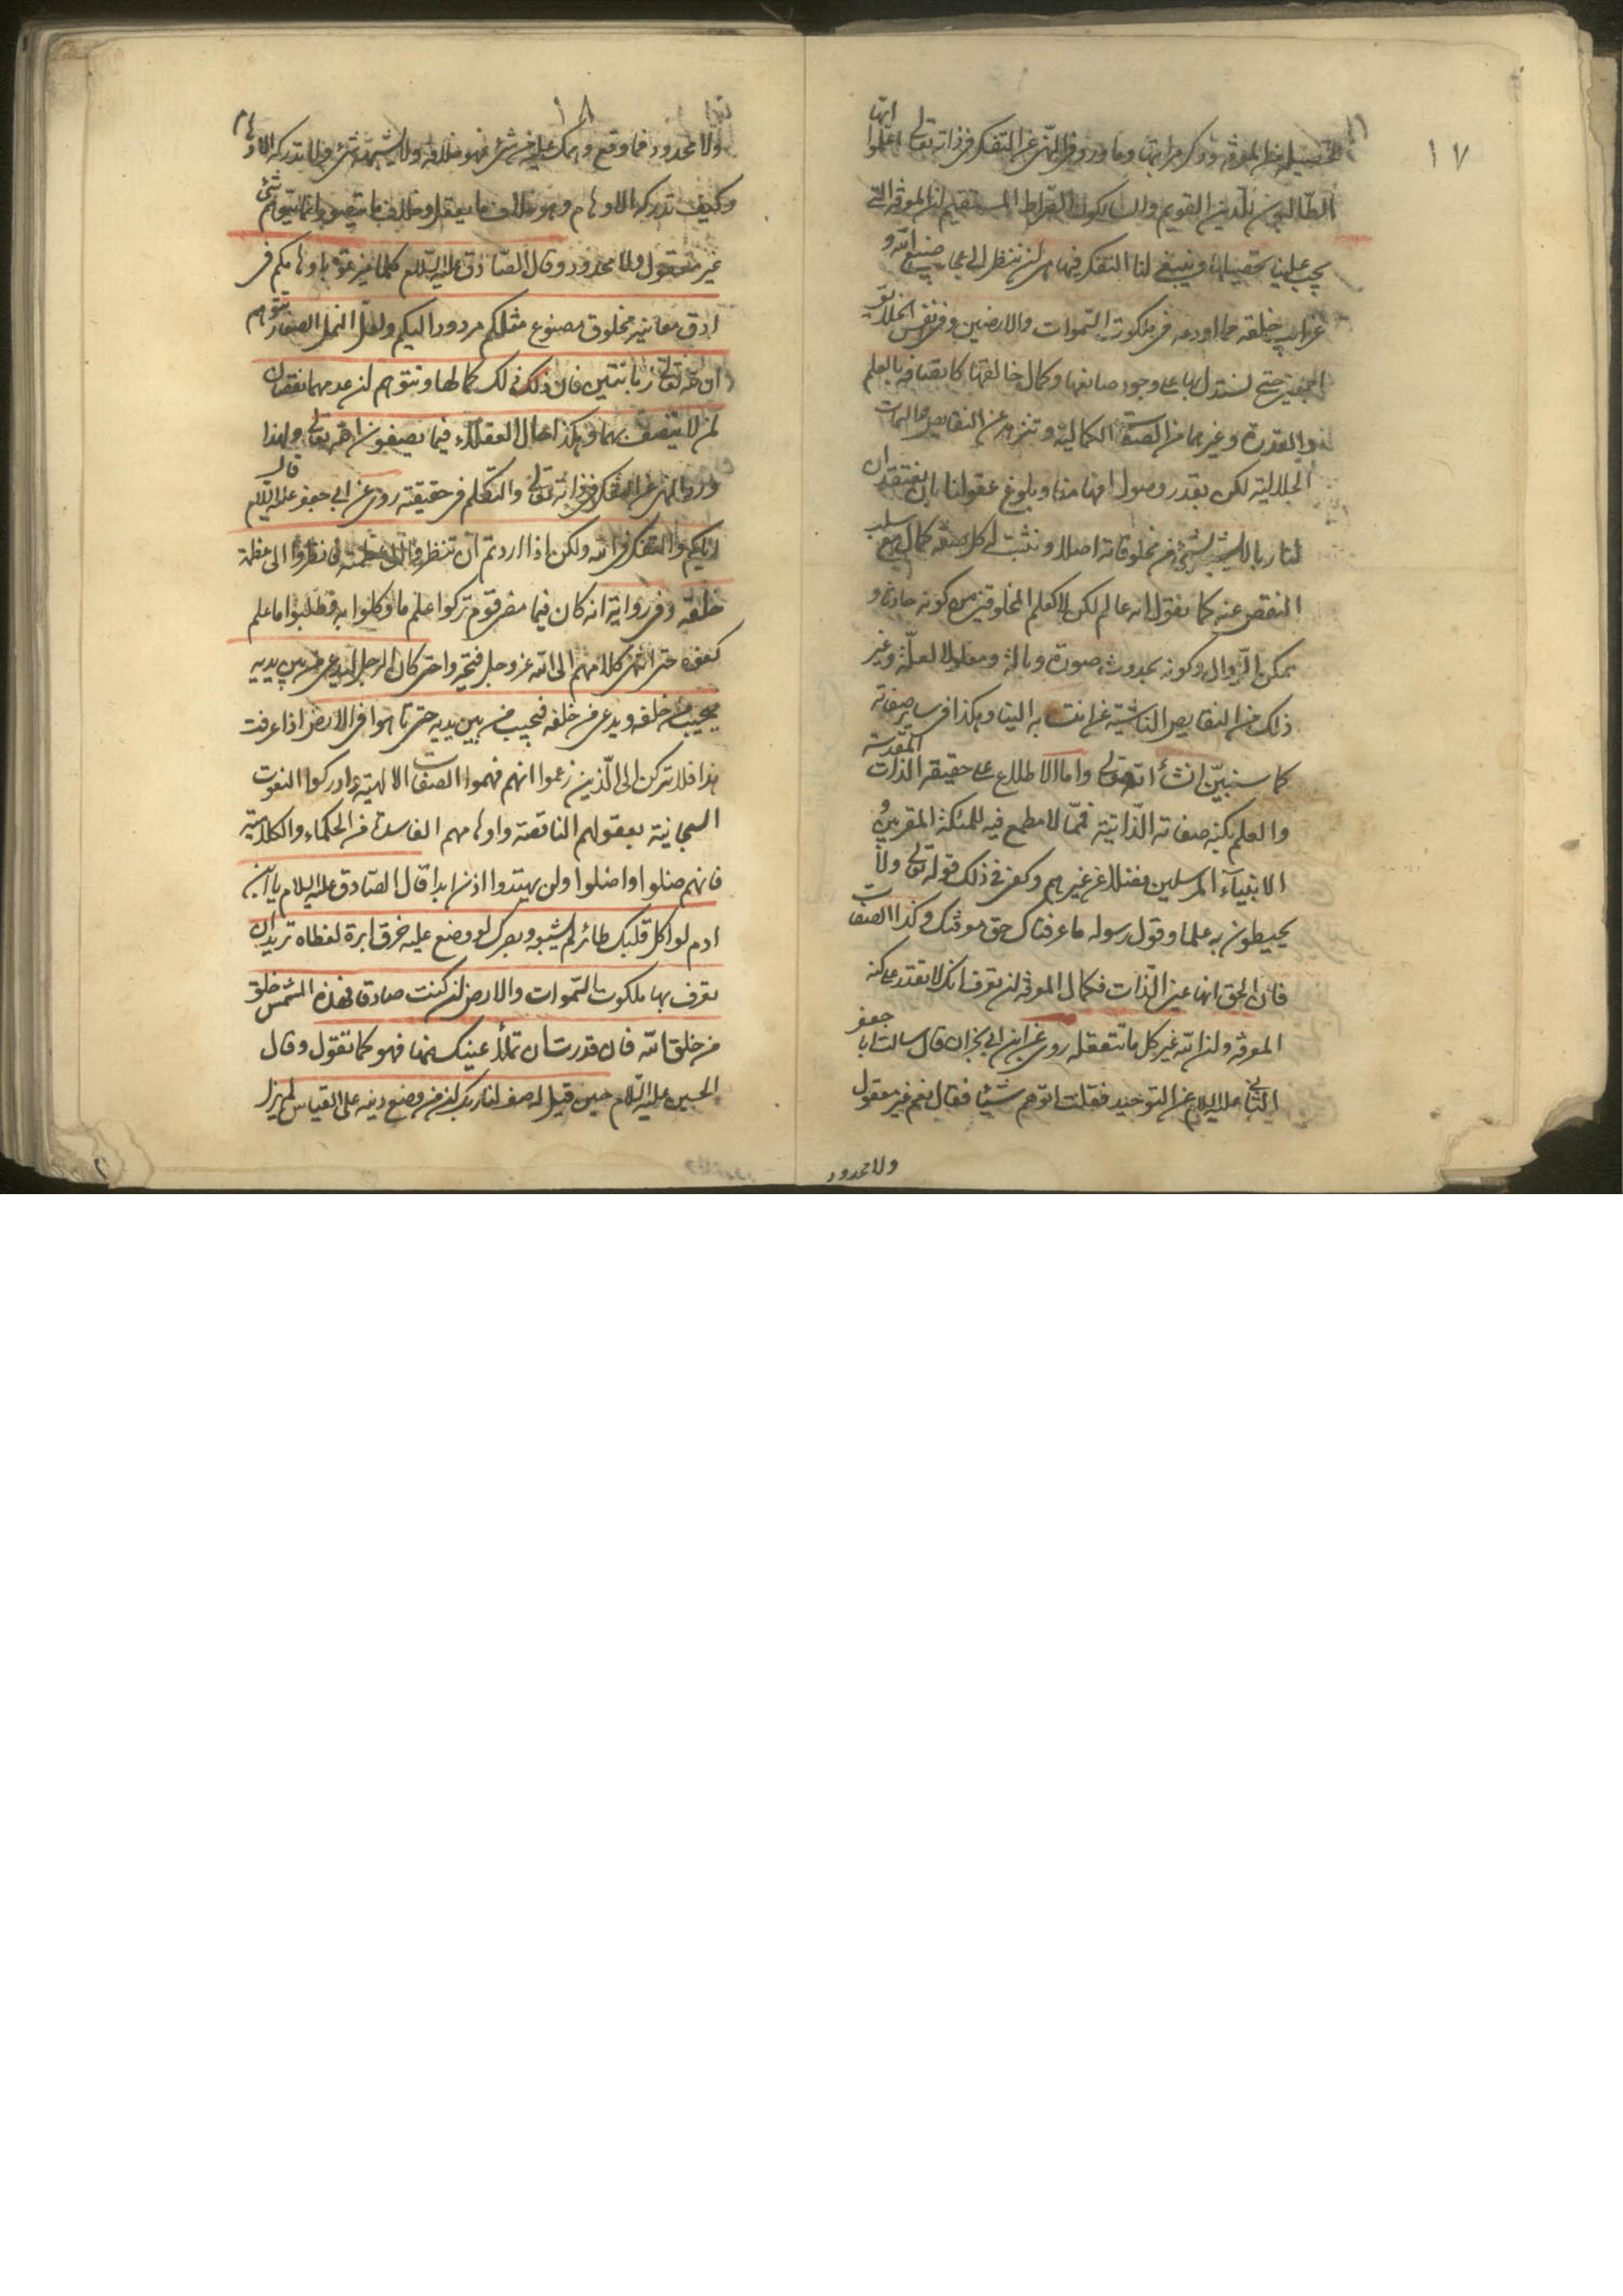 ١٧
تحصيله من المعرفة وذكر مراتبها وما ورد في النهي عن التفكر في ذاته تعالى اعلموا ايها
الطالبون للدين القويم والسالكون الصراط المستقيم ان المعرفة التي
يجب علينا تحصيلها وينبغي لنا التفكر فيها هي ان ننظر الى عجايب صنع الله و
غرايب خلقه مما اودعه في ملكوت السموات والارضين وفي نفس الخلايق
اجمعين حتى نستدل بها على وجود صانعها وكمال خالقها كاتصافه بالعلم
والقدرة وغيرهما من الصفات الكمالية وتنزهه عن النقايص والسمات
الجلالية لكن بقدر وصول افهامنا وبلوغ عقولنا بان نعتقد ان
لنا ربا لا يشبه بشيء من مخلوقاته اصلا ونثبت له كل صفة كمال مع سلب
النقص عنه كما نقول انه عالم لكن لا كعلم المخلوقين من كونه حادثا و
ممكن الزوال وكونه بحدوث صورة وبالة ومعلولا لعلة وغير
ذلك من النقايص الناشية عما نسب به الينا وهكذا في ساير صفاته
كما سنبين انشأ الله تعالى واما الاطلاع على حقيقة الذات المقدسة
والعلم بكنه صفاته الذاتية فمما لا مطمع فيه للملئكة المقربين و
الانبيآء المرسلين فضلا عن غيرهم وكفى في ذلك قوله تعالى ولا
يحيطون به علما وقول رسوله ما عرفناك حق معرفتك وكذا الصفات
فان الحق انها عين الذات فكمال المعرفة ان تعرف انك لا تقدر على كنه
المعرفة وان الله غير كل ما تتعقله روى عن ابن ابي نجران قال سالت ابا جعفر
الثاني عليه السلام عن التوحيد فقلت اتوهم شيئا فقال نعم غير معقول
ولا محدود
١٨
ولا محدود فما وقع وهمك عليه من شيء فهو خلافه ولا يشبهه شيء ولا تدركه الاوهام
وكيف تدركه الاوهام وهو خلاف ما يعقل وخلاف ما يتصور انما يتوهم شيء
غير معقول ولا محدود وقال الصادق عليه السلام كلما ميزتموه باوهامكم في
ادق معانيه مخلوق مصنوع مثلكم مردود اليكم ولعل النمل الصغار تتوهم
ان لله تعالى زبانيتين فان ذلك كمالها وتتوهم ان عدمهما نقصان
لمن لا يتصف بهما وهكذا حال العقلاء فيما يصفون الله تعالى ولهذا
ورد النهي عن التفكر في ذاته تعالى والتكلم في حقيقته روى عن ابي جعفر عليه السلام قال
اياكم والتفكر في الله ولكن اذا اردتم ان تنظروا الى عظمته فانظروا الى عظمة
خلقه وفي رواية انه كان فيما مضى قوم تركوا علم ما وكلوا به وطلبوا ما علم
كفوه حتى انتهى كلامهم الى الله عز وجل فتحيروا حتى كان الرجل ليدعى من بين يديه
فيجيب من خلفه ويدعى من خلفه فيجيب من بين يديه حتى تاهوا في الارض اذا عرفت
هذا فلا تركن الى الذين زعموا انهم فهموا الصفات الالهية وادركوا النعوت
السبحانية بعقولهم الناقصة واوهامهم الفاسدة من الحكماء والكلامية
فانهم ضلوا واضلوا ولن يهتدوا اذن ابدا قال الصادق عليه السلام يا ابن
ادم لو اكل قلبك طائر لم يشبعه وبصرك لو وضع عليه خرق ابرة لغطاه تريد ان
تعرف بها ملكوت السموات والارض ان كنت صادقا فهذه الشمس خلق
من خلق الله فان قدرت ان تملأ عينيك منها فهو كما تقول وقال
الحسين عليه السلام حين قيل له صف لنا ربك ان من وضع دينه على القياس لم يزل